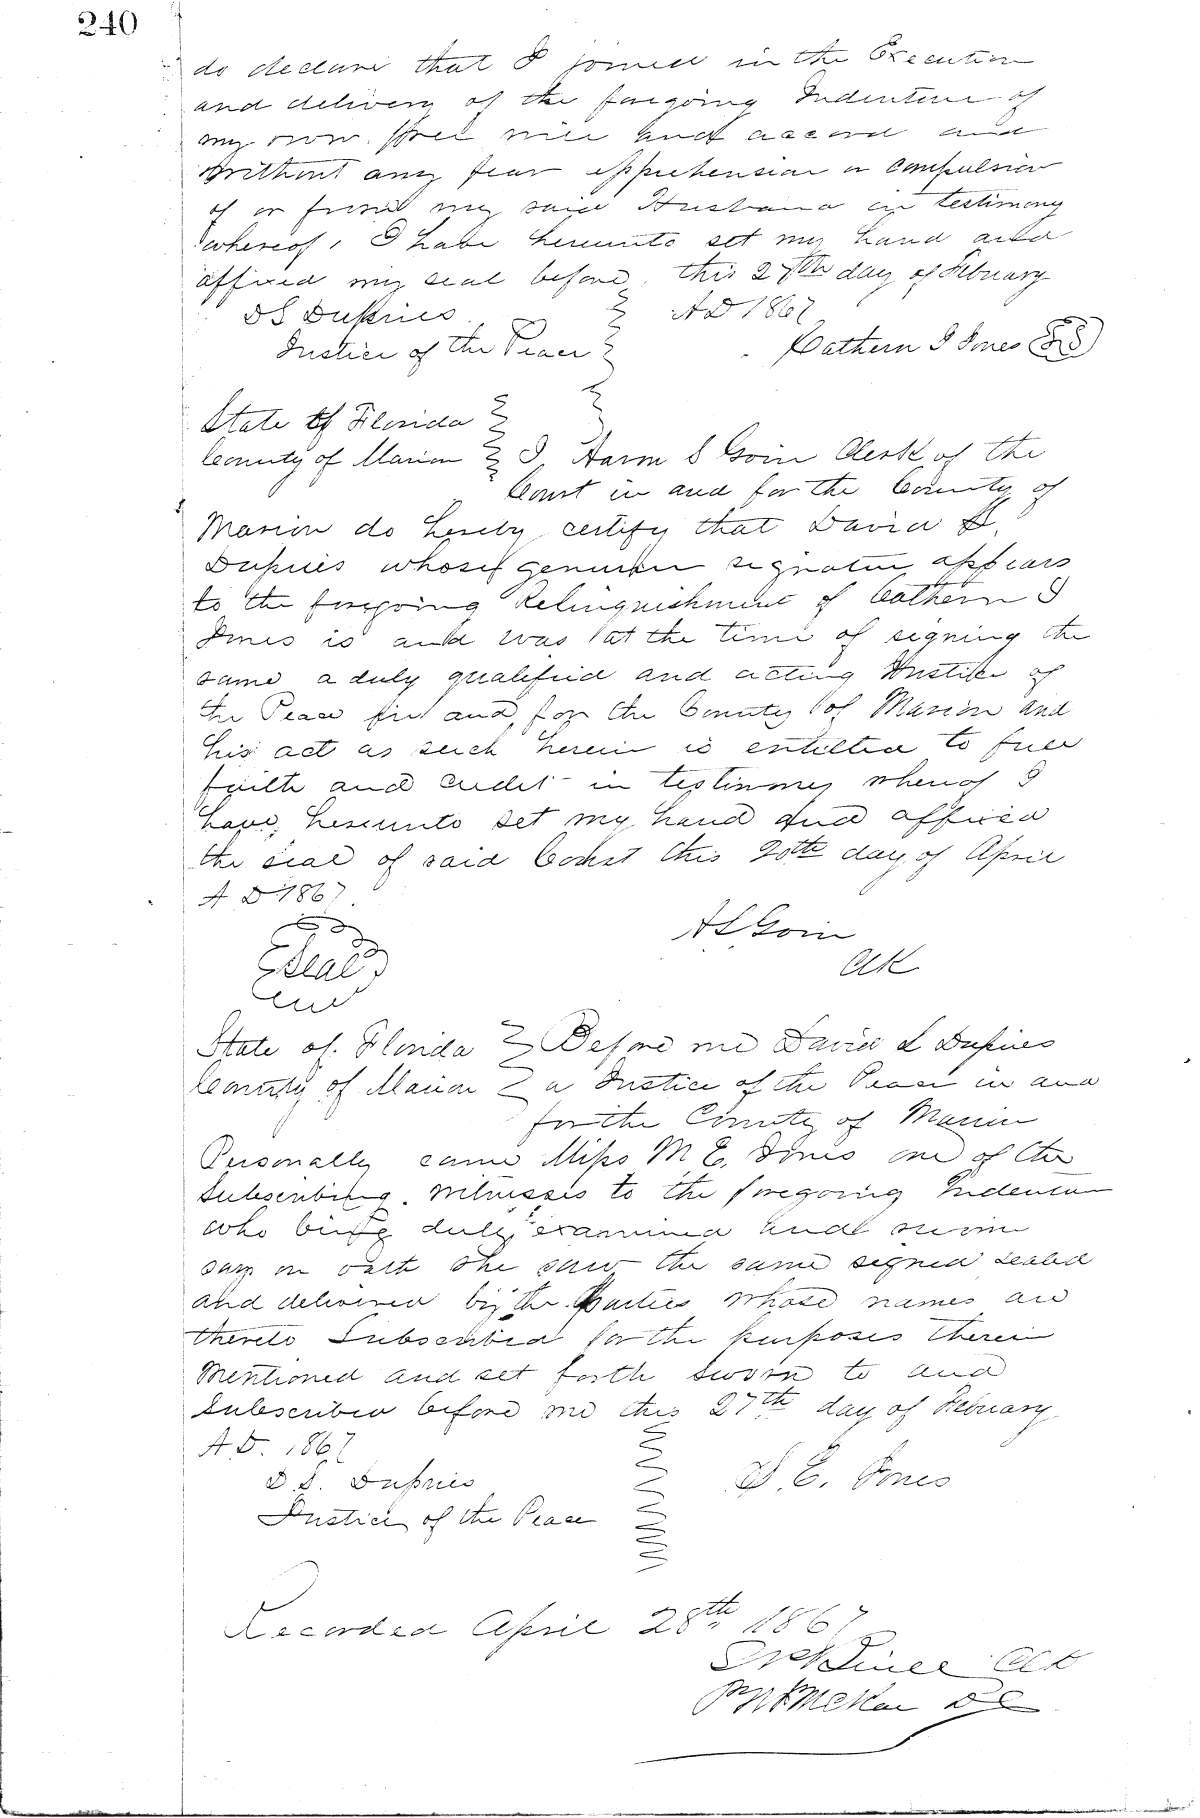 240
do declare that I joined in the Execution
and delivery of the foregoing Indenture of
my own free will and accord and
without any fear apprehension or compulsion
of or from my said Husband in testimony
whereof, I have hereunto set my hand and
affixed my seal before, this 27th day of Febuary
DS Dupries AD 1867
Justice of the Peace Cathern I Jones LS
State of Florida
County of Marion I S Goin Clerk of the
Court in and for the County of
Marion do hereby certify that David S.
Dupries whose genuine signature appears
to the foregoing Relinquishment of Cathern I
Jones is and was at the time of signing the
same a duly qualified and acting Justice of
the Peace in and for the County of Marion and
his act as such herein is entitled to full
faith and credit in testimony whereof I
have, hereunto set my hand and affixed
the seal of said Court this 20th day of April
A D 1867
Seal
H S Goin
Clk
State of Florida Before me David S Dupries
County of Marion a Justice of the Peace in and
for the County of Marion
Personally came Miss M E. Jones one of the
Subscribing Witnesses to the foregoing Indenture
who being duly examined and sworn
say on oath she saw the same signed sealed
and delivered by the Parties whose names are
thereto Subscribed for the purposes therein
Mentioned and set forth sworn to and
Subscribed before me this 27th day of Febuary
A D. 1867
D S. Dupries S. E. Jones
Justice of the Peace
Recorded April 28th 1867
Clk
DC